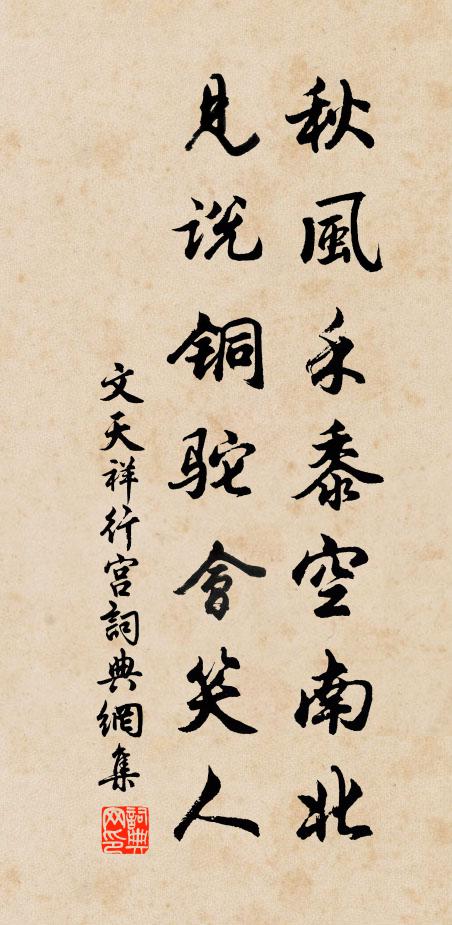 秋風禾黍空南北
見説銅駝會笑人
文天祥行宫詞典網集
詞典網印